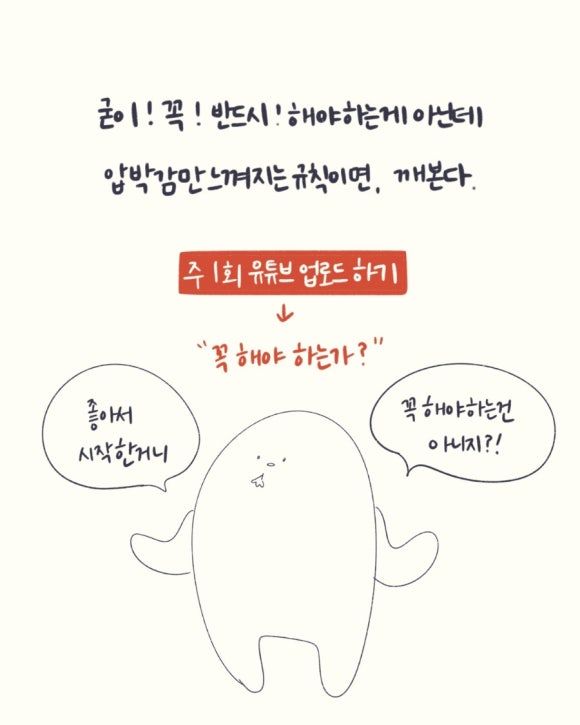 굳이! 꼭! 반드시! 해야하는게 아닌데
압박감만 느껴지는 규칙이면, 깨본다.
주 1회 유튜브 업로드 하기
↓
"꼭 해야 하는가?"
좋아서
시작한거니
꼭 해야하는건
아니지?!